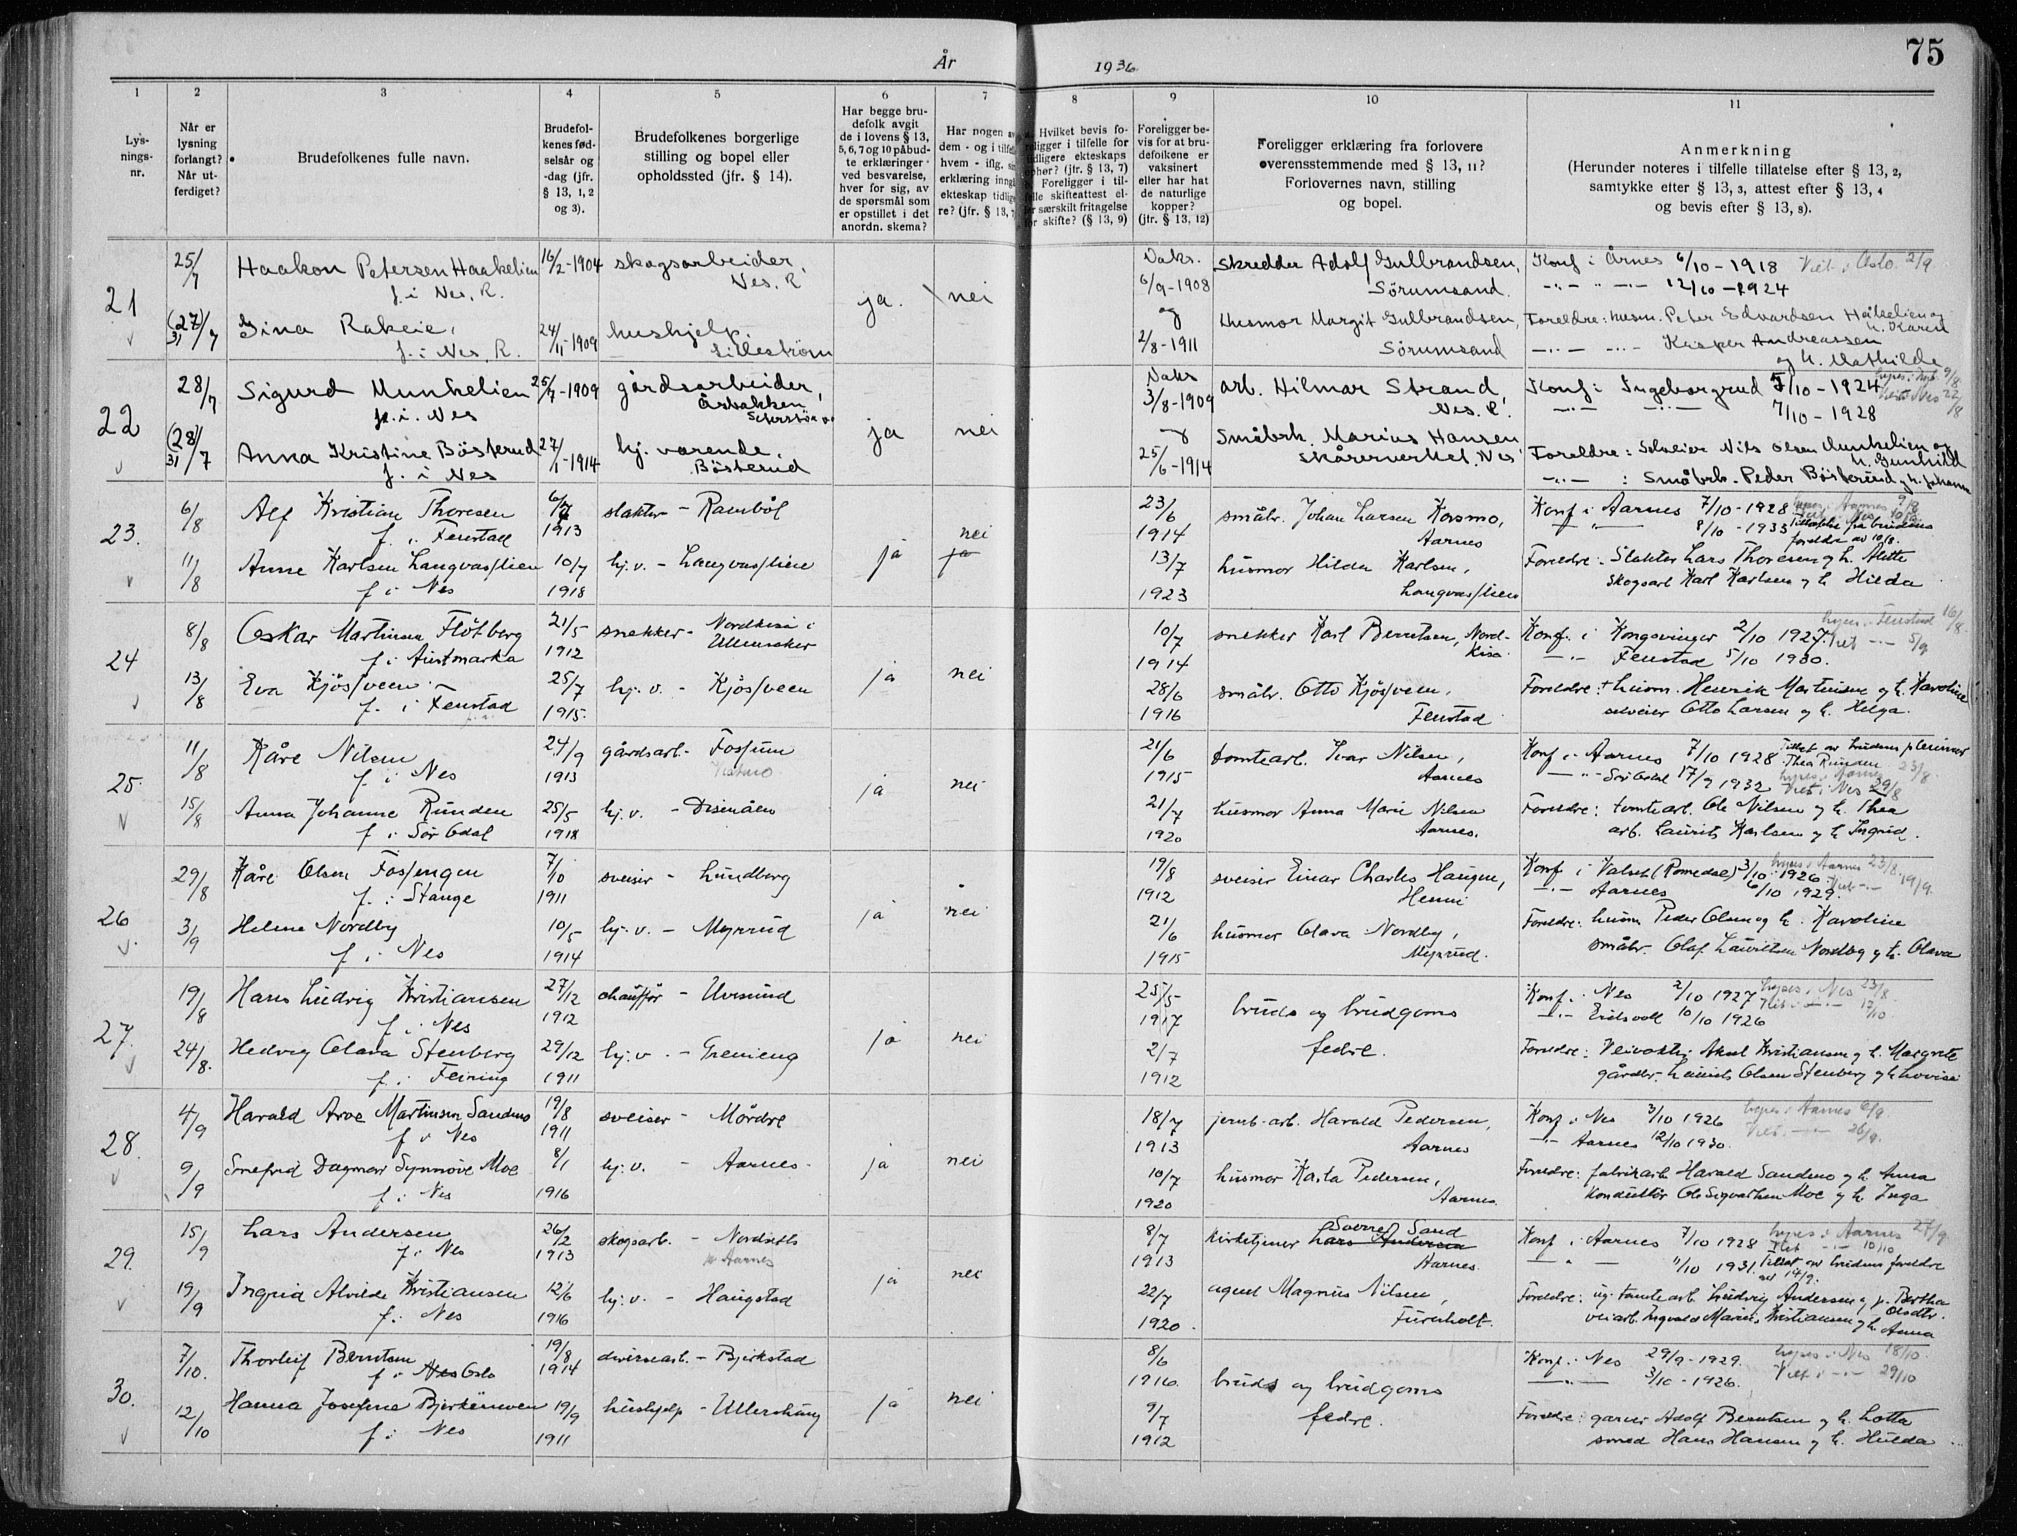 75
År 1936
1 2 3 4 5 6 7 8 9 10 11
Lys-
nings-
nr.
Når er
lysning
forlangt?
Når ut-
ferdiget?
Brudefolkenes fulle navn.
Brudefol-
kenes fød-
selsår og
-dag (jfr.
§ 13, 1, 2
og 3).
Brudefolkenes borgerlige
stilling og bopel eller
opholdssted (jfr. § 14).
Har begge bru-
defolk avgit
de i lovens § 13,
5, 6, 7 og 10 påbud-
te erklæringer
ved besvarelse,
hver for sig, av
de spørsmål som
er opstillet i det
anordn. skema?
Har nogen av
dem - og i tilfelle
hvem - iflg.
erklæring inng
ekteskap tidlig
re? (jfr. § 13, 7
Hvilket bevis fo-
religger i tilfelle for
tidligere ekteskaps
ophør? (jfr. § 13, 7)
Foreligger i til-
felle skifteattest el-
ler særskilt fritagelse
for skifte? (§ 13, 9)
Foreligger be-
vis for at bru-
defolkene er
vaksinert
eller har hat
de naturlige
kopper?
(jfr. § 13, 12)
Foreligger erklæring fra forlovere
overensstemmende med § 13, 11?
Forlovernes navn, stilling
og bopel.
Anmerkning
(Herunder noteres i tilfelle tillatelse efter § 13, 2,
samtykke efter § 13, 3, attest efter § 13, 4
og bevis efter § 13, 8).
21
25/7 Haakon Petersen Haakelien 16/2-1904 skogsarbeider,
f. i Nes, R. Nes. R
ja. nei
Vaks. 6/9-1908 Skredder Adolf Gulbrandsen,
Sörumsand.
Konf i Årnes 6/10-1918 Viet i Oslo 2/9
-"- " -"- 12/10-1924
(27)/31/7 Gina Rakeie, 24/11-1909 hushjelp.
f. i Nes, R. Lilleström
og 2/8-1911 Husmor Margit Gulbrandsen,
Sörumsand
Foreldre: husm. Peter Edvardsen og
h. Karen
-"- -"- Kasper Andreassen
og h. Mathilde
22
28/7 Sigurd Munkelien 25/7-1909 gårdsarbeider,
f. i. Nes
ja nei
Vaks 3/8-1909 arb. Hilmar Strand,
Nes. R.
Konf i Ingeborgrud 5/10-1924
-"- -"- 7/10-1928
(28)/31/7 Anna Kristine Bösterud 27/1-1914 hj. værende,
f. i Nes Bösterud
og 25/6-1914 Småbrk. Marius Hansen
Skårerverket. Nes
Foreldre: Selveier Nils Olsen Munkelien og
h. Gunhild
-"- : Småbrk. Peder Bösterud og h. Johanne
23.
6/8 Alf Kristian Thoresen 6/7 1913 slakter - Ramböl
f. i Fenstad
ja nei ja
23/6 1914 småbr. Johan Larsen Kosmo,
Aarnes
Konf i Aarnes 7/10-1928 lyses i Aarnes 9/8
-"- 8/10-1933 Tillatelse fra brudens
foreldre av 10/8.
11/8 Anne Karlsen Langvasslien 10/7 1918 hj.v. - Langvasslien
f i Nes
13/7 1923 husmor Hilda Karlsen,
Langvasslien
Foreldre: Slakter Lars Thoresen og h. Mette
Skogsarb Karl Karlsen og h. Hilda
24
8/8 Oskar Martinsen Flötberg 21/5 1912 snekker - Nordkisa i
Ullensaker
f i Austmarka
ja nei
10/7 1914 snekker Karl Berntsen, Nord-
Kisa
Konf. i Kongsvinger 2/10 1927. lyses i Fenstad 16/8
-"- Fenstad 5/10 1930. Viet -"- 5/9
13/8 Eva Kjösveen 25/7 1915. hj. v. - Kjösveen
f. i Fenstad
28/6 1916 småbr. Otto Kjösveen,
Fenstad
Foreldre: + husm. Henrik Martinsen og h. Karoline
selveier Otto Larsen og h. Helga.
25.
11/8 Kåre Nilsen 24/9 1913 gårdsarb. Fossum
f i Nes
ja nei
21/6 1915 tomtearb. Ivar Nilsen,
Aarnes
Konf i Aarnes 7/10 1928 Tillat. av brudens
Thea Runden 23/8.
-"- Sör Odal 17/9 1932 lyses i Aarnes
Viet i Nes 29/8
15/8 Anna Johanne Runden 25/5 1918 hj. v. - Disenåen
f i Sör Odal
21/7 1920 husmor Anna Marie Nilsen
Aarnes.
Foreldre: tomtearb. Ole Nilsen og h. Thea
arb. Laurits Karlsen og h. Ingrid.
26
29/8 Kåre Olsen Fossengen 7/10 1911 sveiser - Lundberg
f. i Stange
ja nei
19/8 1912 sveiser Einar Charles Haugen,
Henni
Konf i Valset (Romedal) 3/10 1926 lyses i Aarnes 23/8.
-"- Aarnes 6/10 1929. Viet -"- 19/9.
3/9 Helene Nordby 10/5 1914 hj. v. - Myrrud
f i Nes
21/6 1915 husmor Olava Nordby,
Myrrud.
Foreldre: husm Peder Olsen og h. Karoline
småbr. Olaf Lauritsen Nordby og h. Olava
27.
19/8 Hans Ludvig Kristiansen 27/12 1912 chauffør - Uvesund
f. i Nes
ja nei
25/5 1917 bruds og brudgoms
fedre.
Konf. i Nes 2/10 1927 lyses i Nes 23/8
-"- Eidsvoll 10/10 1926 Viet -"- 17/10.
24/8. Hedvig Olava Stenberg 29/12 1911 hj. v. - Grenieng
f i Feiring
2/7 1912
Foreldre: Veivokter Aksel Kristiansen og h. Margrete
gårdbr. Laurits Olsen Stenberg og h. Lovise
28.
4/9 Harald Arve Martinsen Sandmo 19/8 1911 sveiser - Mårdre
f i Nes
ja nei
18/7 1913 jernb.arb. Harald Pedersen,
Aarnes
Konf i Nes 3/10 1926 lyses i Aarnes 6/9
-"- Aarnes 12/10 1930. Viet. -"- 26/9.
9/9 Snefrid Dagmar Synnöve Moe 8/1 1916 hj. v. - Aarnes
f i Nes
10/7 1920 husmor Kasta Pedersen,
Aarnes.
Foreldre: fabrikarb Harald Sandmo og h. Anna
Konduktör Ole Sigvartsen Moe og h. Inga
29.
15/9 Lars Andersen 26/2 1913 skogsarb. - Nordseth
f. i Nes Aarnes
ja nei
8/7 1913 kirketjener Lars Andersen Sverre Sand
Aarnes.
Konf i Aarnes 7/10 1928 lyses i Aarnes 27/9
Viet -"- 10/10
-"- 11/10 1931. Tillat av brudens foreldre
av 14/9.
19/9 Ingrid Alvilde Kristiansen 12/6 1916 hj. v. - Haugstad
f. i Nes
22/7 1920. agent Magnus Nilsen,
Furuholt.
Foreldre: ug. tomtearb. Ludvig Andersen og p. Bertha
Olsdtr.
veiarb. Ingvald Marius Kristiansen og h. Anna
30.
7/10. Thorleif Berntsen 19/8 1914 diversearb. - Bjerkstad
f i Nes Oslo
ja nei
8/6 1916. bruds og brudgoms
fedre.
Konf. i Nes 29/9-1929. lyses i Nes 18/10.
-"- 3/10-1926. Viet i -"- 29/10
12/10 Hanna Josefine Bjerkenveen 19/9 1911 hushjelp - Ullershaug
f i Nes
9/7 1912
Foreldre: garver Adolf Berntsen og h. Lotta
smed Hans Hansen og h. Hulda